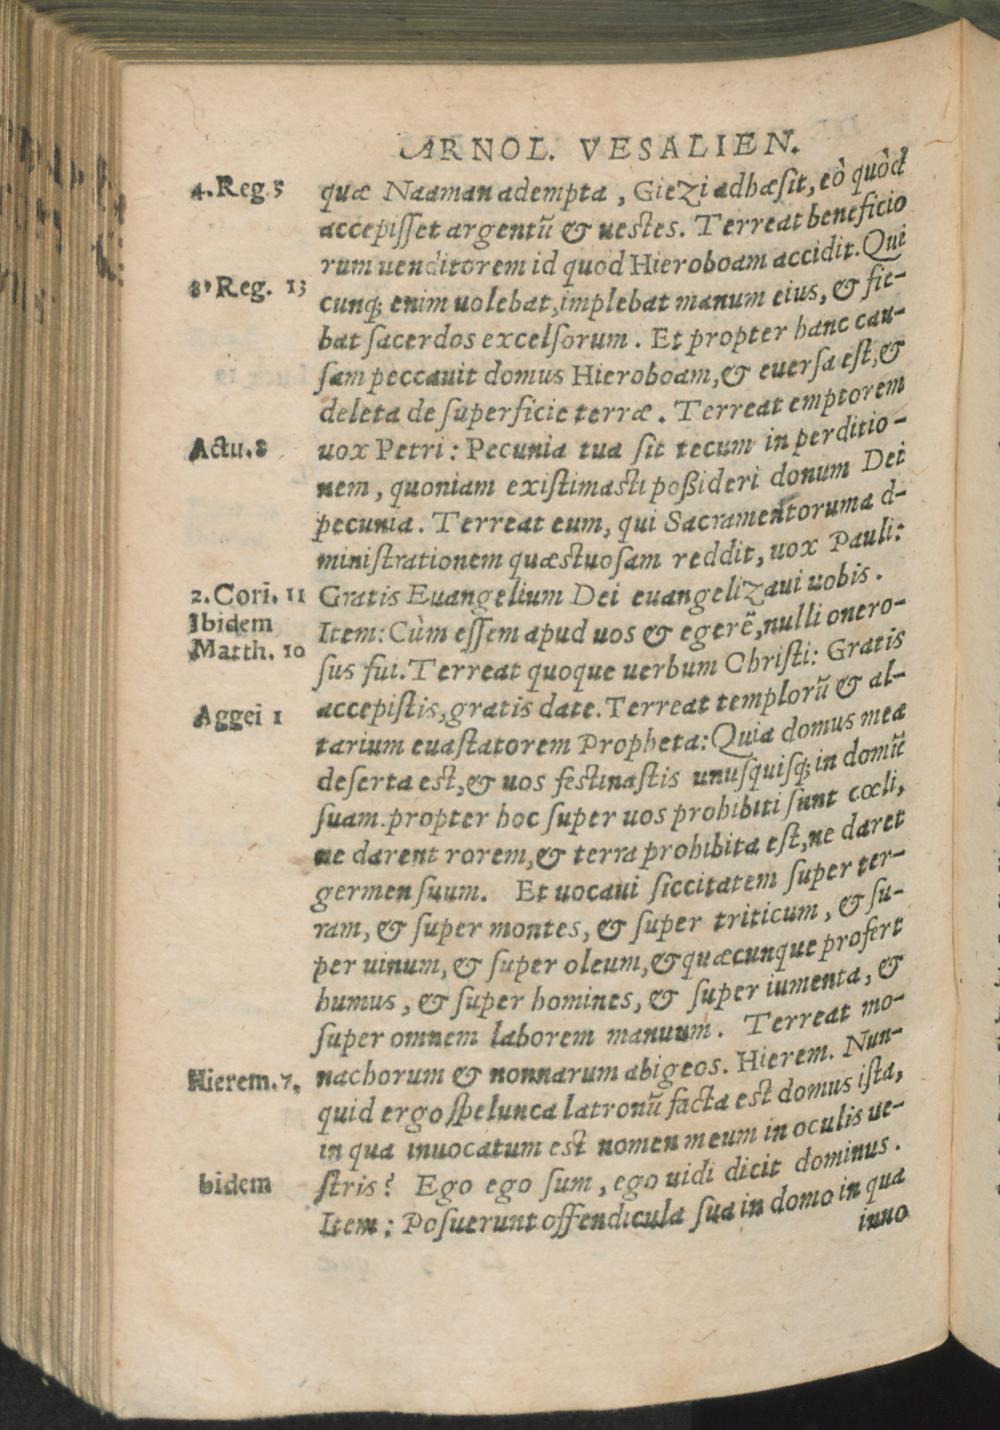 ARNOL. VESALIEN.
4. Reg. 5 quæ Naaman adempta, Giezi adhæsit, eò quòd
accepisset argentū & uestes. Terreat beneficio
rum uenditorem id quod Hieroboam accidit. Qui
Reg. 13 cunq; enim uolebat, implebat manum eius, & fie-
bat sacerdos excelsorum. Et propter hanc cau-
sam peccauit domus Hieroboam, & euersa est, &
deleta de superficie terræ. Terreat emptorem
Actu. 8 uox Petri: Pecunia tua sit tecum in perditio-
nem, quoniam existimasti poßideri donum Dei
pecunia. Terreat eum, qui Sacramentoruma d-
ministrationem quæstuosam reddit, uox Pauli:
2. Cori. 11 Gratis Euangelium Dei euangelizaui uobis.
Ibidem Item: Cùm essem apud uos & egerē, nulli onero-
Matth. 10 sus fui. Terreat quoque uerbum Christi: Gratis
accepistis, gratis date. Terreat templorū & al-
Aggei 1 tarium euastatorem Propheta: Quia domus mea
deserta est, & uos festinastis unusquisq; in domū
suam. propter hoc super uos prohibiti sunt cœli,
ne darent rorem, & terra prohibita est, ne daret
germen suum. Et uocaui siccitatem super ter-
ram, & super montes, & super triticum, & su-
per uinum, & super oleum, & quæcunque profert
humus, & super homines, & super iumenta, &
super omnem laborem manuum. Terreat mo-
Hierem. 7. nachorum & nonnarum abigeos. Hierem. Nun-
quid ergo spelunca latronū facta est domus ista,
in qua inuocatum est nomen meum in oculis ue-
bidem stris? Ego ego sum, ego uidi dicit dominus.
Item: Posuerunt offendicula sua in domo in qua
inuo